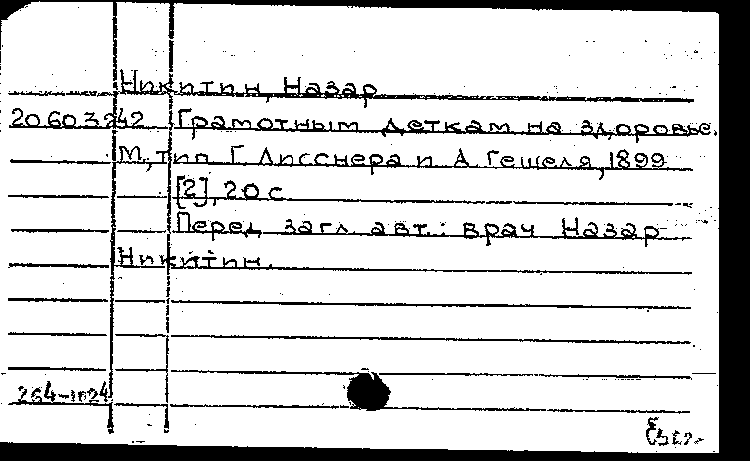 Никитин, Назар
20 60.3242 Грамотным деткам на здоровье.
М., тип Г. Лисснера и А. Гешеля, 1899
[2], 20 с.
Перед загл. авт.: врач Назар
Никитин.
264-1024